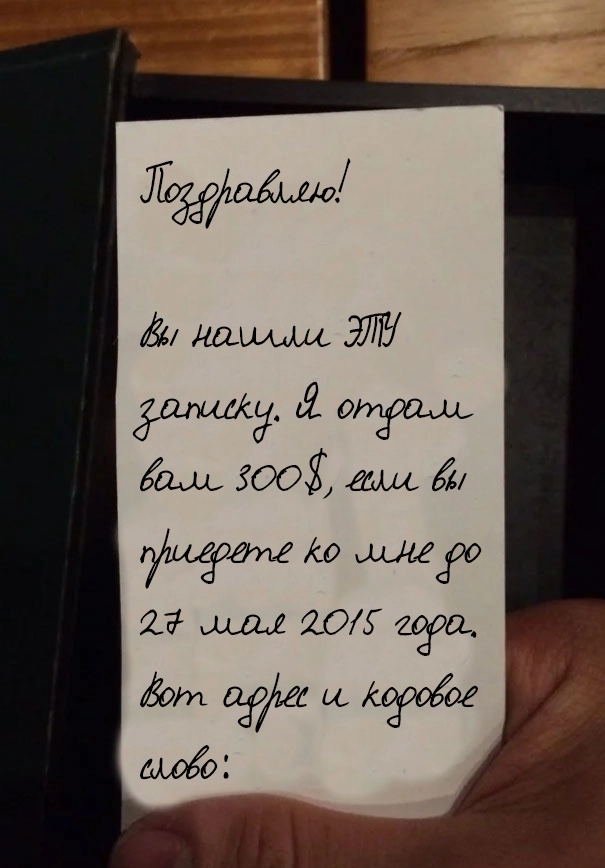 Поздравляю!
Вы нашли ЭТУ
записку. Я отдам
вам 300$, если вы
приедете ко мне до
27 мая 2015 года.
Вот адрес и кодовое
слово: